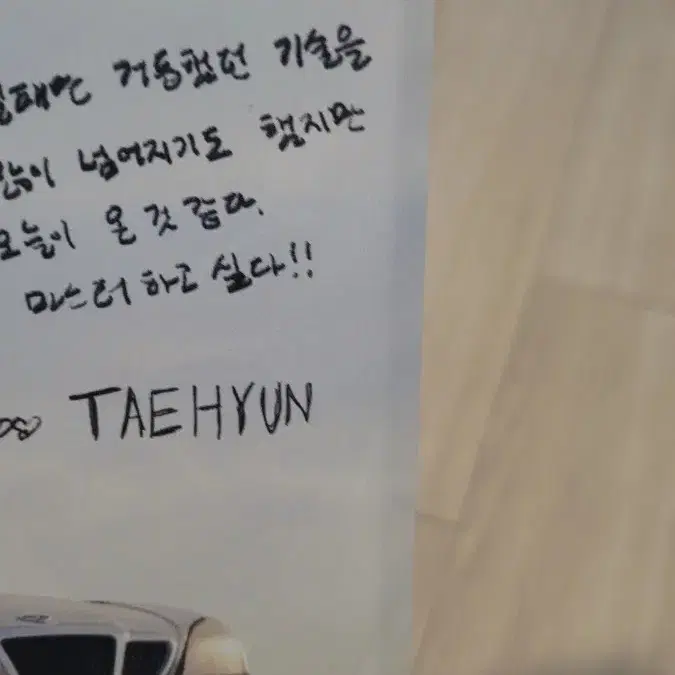 거듭했던 기술을
많이 넘어지기도 했지만
오늘이 온 것 같다.
마스터 하고 싶다!!
TAEHYUN